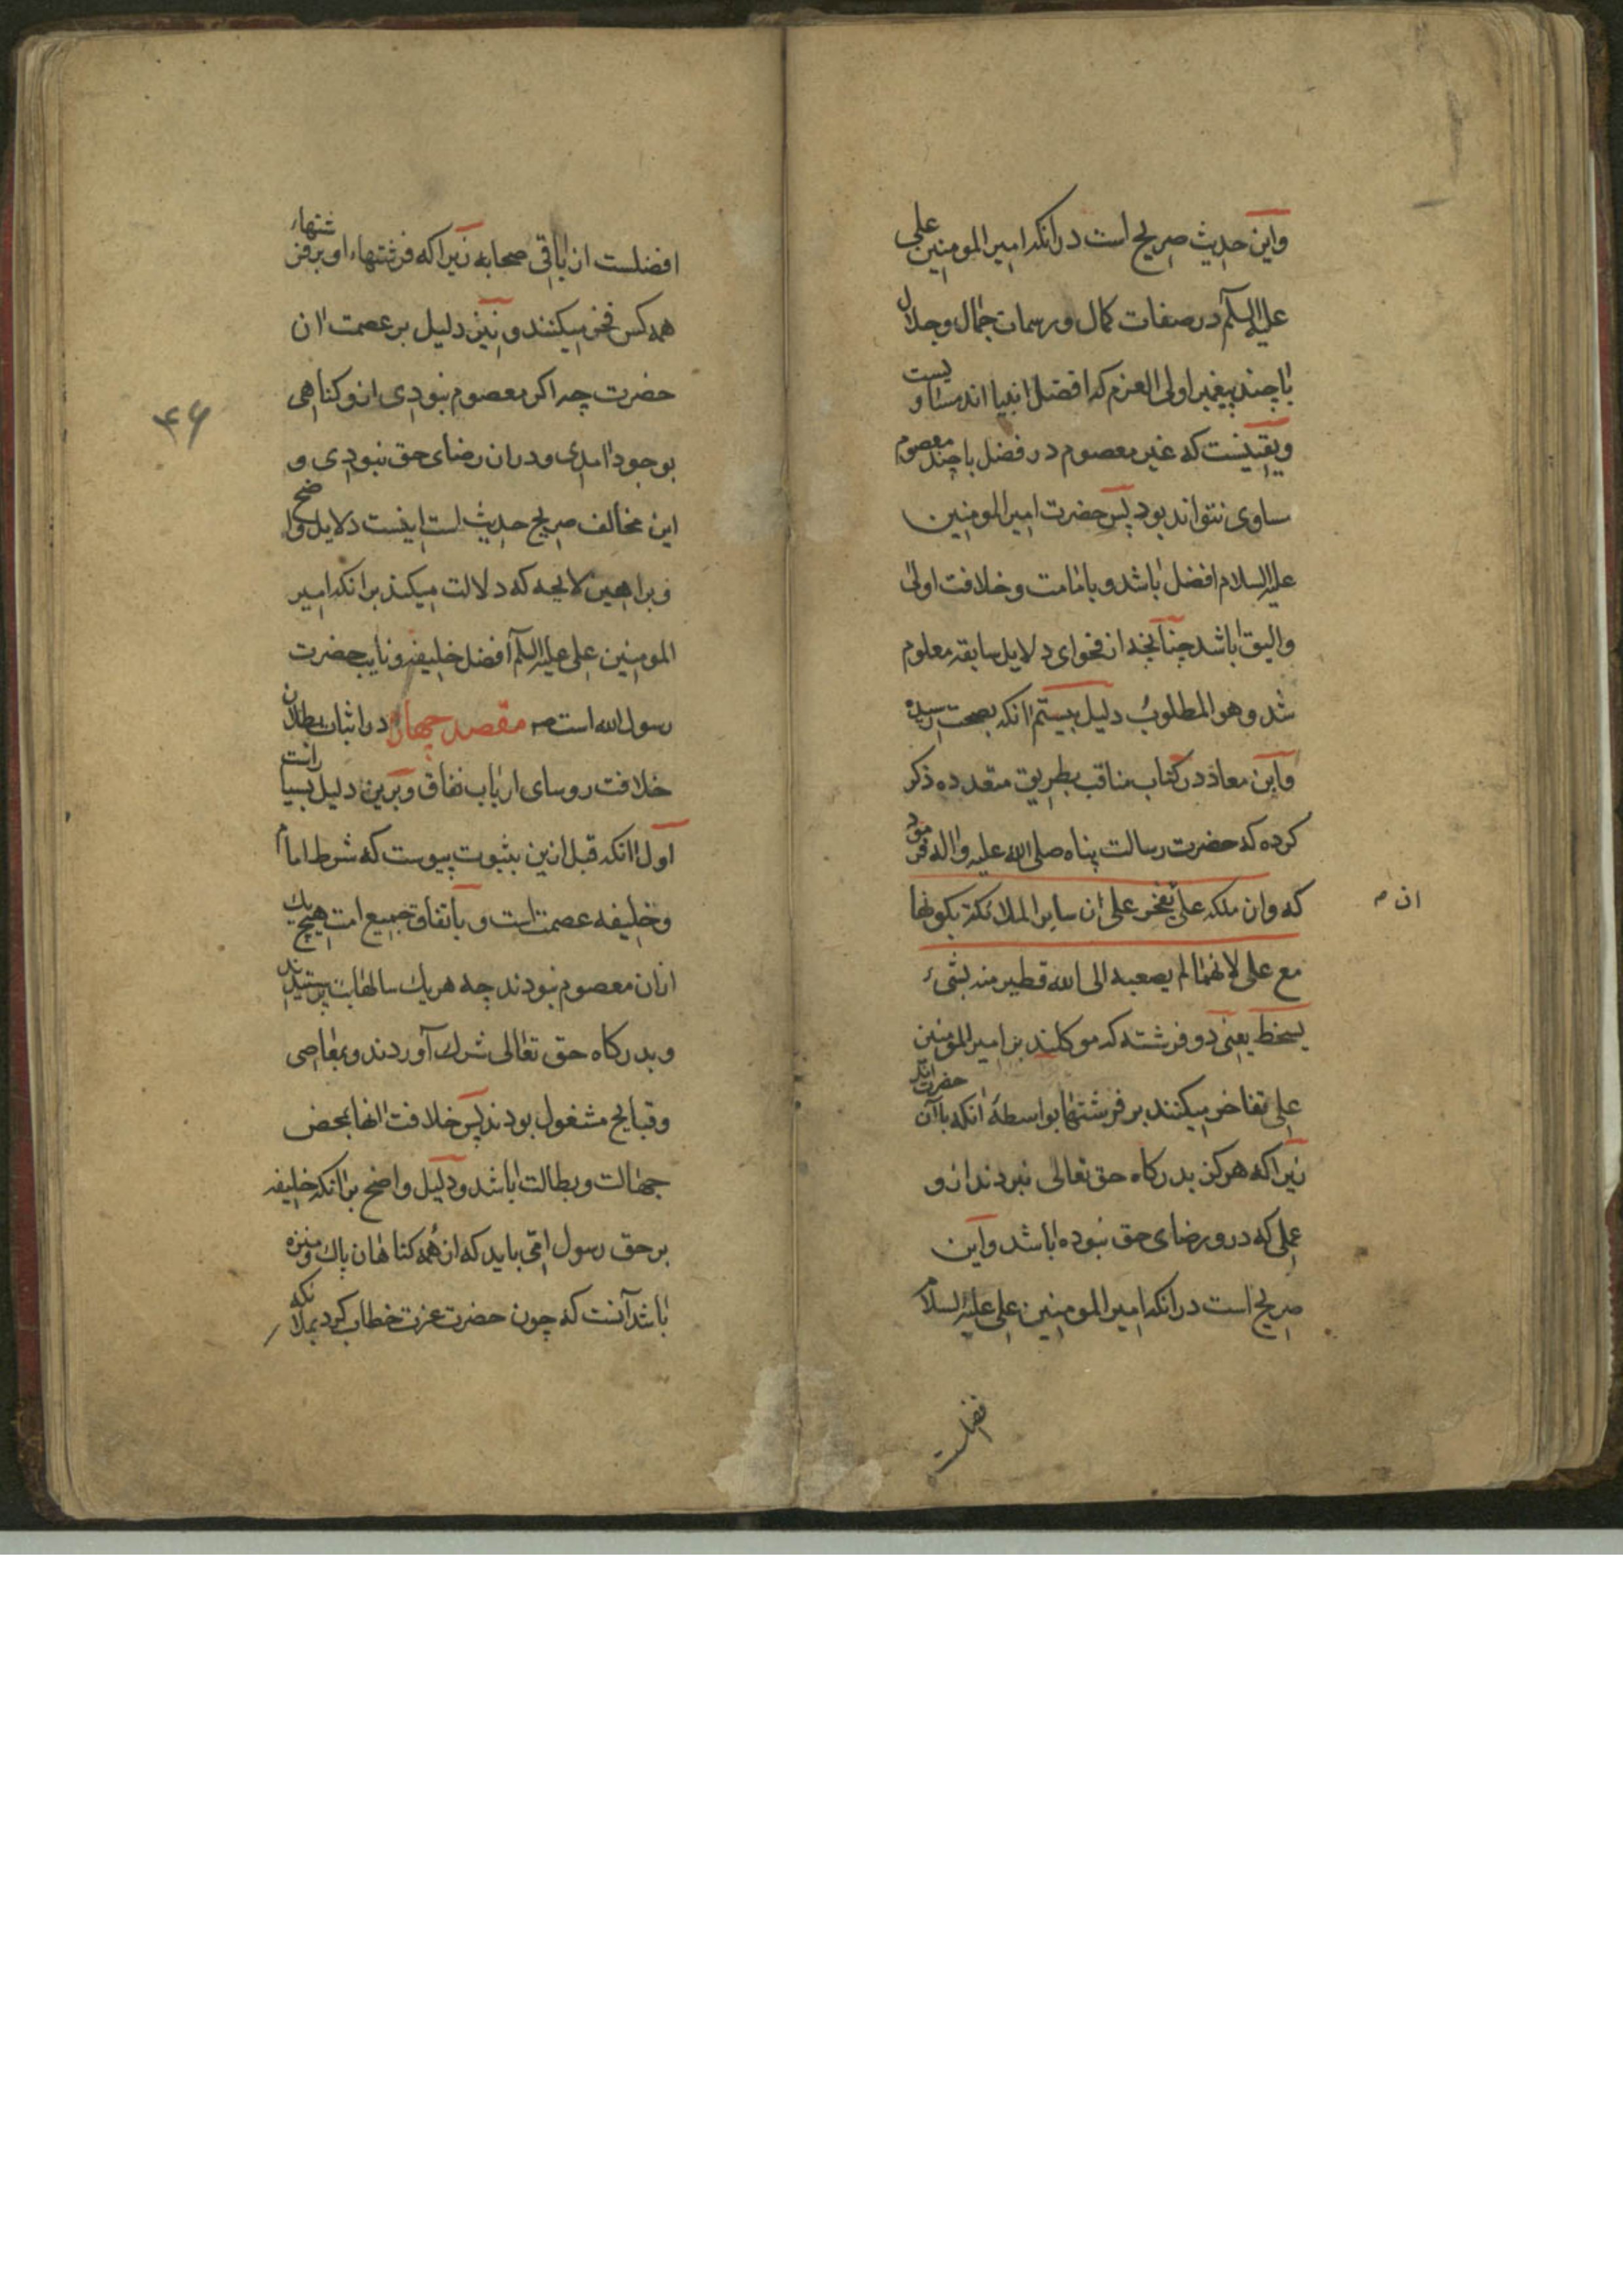 واین حدیث صریح است درانکه امیر المومنین علی
علیه السلم در صفات کمال و رسمات جمال و جلال
با چند پیغمبر اولی العزم که افضل انبیا اند مساویست
و یقینست که غیر معصوم در فضل با چند معصوم
ساوی نتواند بود پس حضرت امیر المومنین
علیه السلام افضل باشد و بامامت و خلافت اولی
والیق باشد چنانچه از فحوای دلایل سابقه معلوم
شد و هو المطلوب دلیل بیستم انکه بصحت رسیده
واین معاذ در کتاب مناقب بطریق متعدده ذکر
کرده که حضرت رسالت پناه صلی الله علیه واله فرمود
که وان ملکه علی یفخر علی ان سایر الملائکة بکونها
ان م
مع علی لانهما لم یصعبه الی الله قط بر منه بشیء
یسخط یعنی دو فرشته که موکلند بر امیر المومنین
علی تفاخر میکنند بر فرشتها بواسطهٔ انکه با آن حضرت اند
زیرا که هرکز بدرکاه حق تعالی نبردند ازو
عملی که درو رضای حق نبوده باشد واین
صریح است درانکه امیر المومنین علی علیه السلام
فضلست
افضلست از باقی صحابه زیرا که فرشتهاء او بر فرشتهاء
همه کس فخر میکنند و نیز دلیل بر عصمت ان
حضرت چه اکر معصوم نبودی ازو کناهی
بوجود امدی و دران رضای حق نبودی و
این مخالف صریح حدیث است اینست دلایل واضح
و براهین لایحه که دلالت میکند برانکه امیر
المومنین علی علیه السلم افضل خلیفه و نایب حضرت
رسول الله است مقصد چهارم در اثبات بطلان
خلافت روسای ارباب نفاق و برین دلیل بسیارست
اول انکه قبل ازین بثبوت پیوست که شرط امام
و خلیفه عصمت است و باتفاق جمیع امت هیچ یک
ازان معصوم نبودند چه هر یک سالها بت پرستیدند
و بدرکاه حق تعالی شرک آوردند و بمعاصی
و قبایح مشغول بودند پس خلافت انها بمحض
جهالت و بطالت باشد و دلیل واضح برانکه خلیفه
بر حق رسول امی باید که از همه کناهان پاک و منزه
باشد آنست که چون حضرت عزت خطاب کرد بملائکه
۴۶